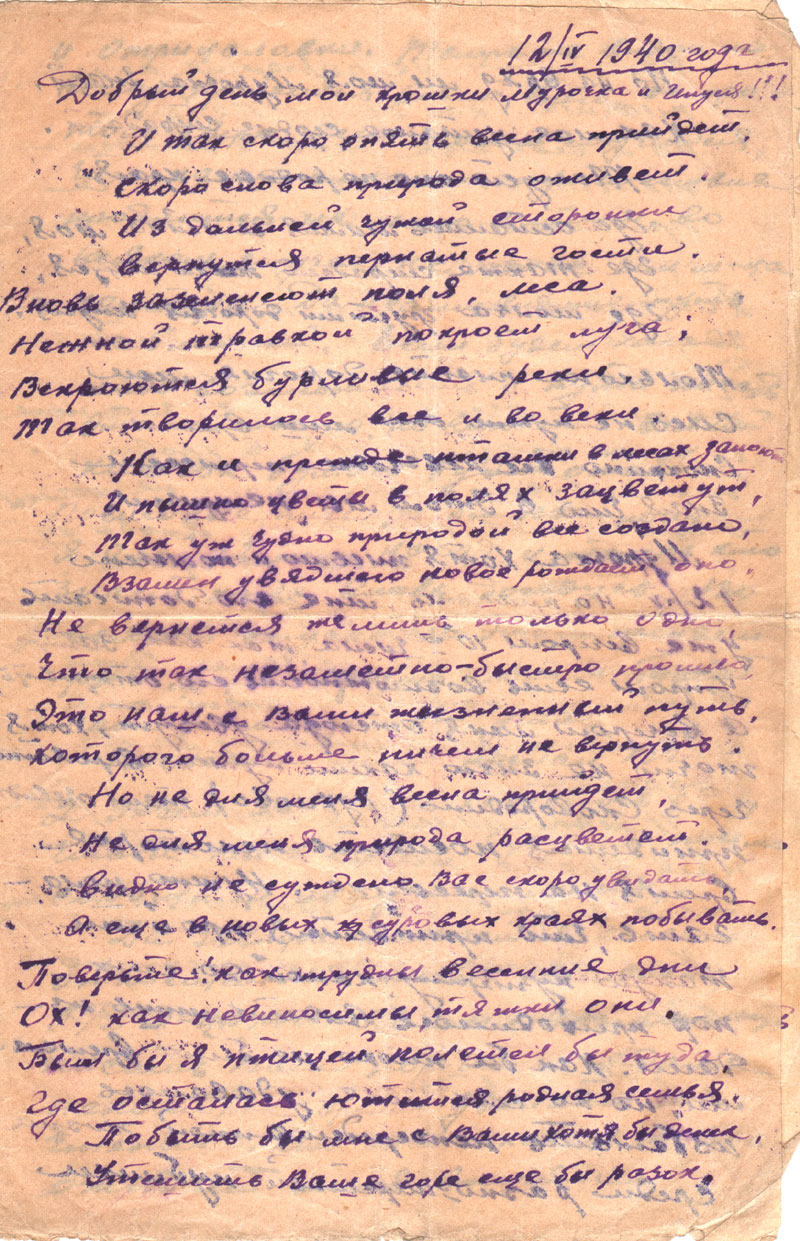 12/IV 1940 года
Добрый день мои крошки Мурочка и !!!
И так скоро опять весна прийдет,
Скоро снова природа оживет.
Из дальней чужой сторонки
вернутся пернатые гости.
Вновь зазеленеют поля, леса.
Нежной травкой покроет луга;
Вскроются бурливые реки.
Так творилось все и во веки.
Как и прежде пташки в лесах запоют
И пышно цветы в полях зацветут,
Так уж чудно природой все создано,
Взамен увядшего новое рождает оно.
Не вернется же лишь только одно,
Что так незаметно-быстро прошло,
Это наш с Вами жизненный путь,
которого больше ничем не вернуть.
Но не для меня весна прийдет,
Не для меня природа расцветет.
Видно не суждено Вас скоро увидать,
А еще в новых суровых краях побывать.
Поверьте! как трудны весенние дни
Ох! как невиносимы тяжки они.
Был бы я птицей полетел бы туда,
Где осталась ютится родная семья.
Побыть бы мне с Вами хотя бы денек,
Утешить Ваше горе еще бы разок.